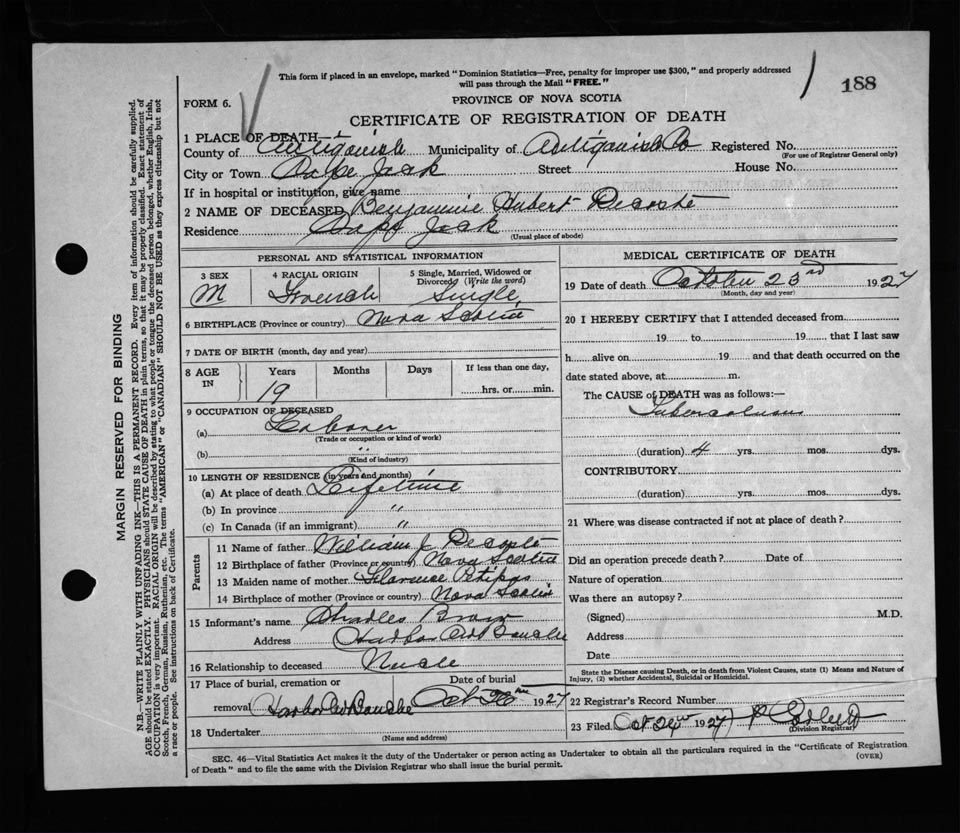 This form if placed in an envelope, marked "Dominion Statistics—Free, penalty for improper use $300," and properly addressed
will pass through the Mail "FREE."
188
FORM 6.
PROVINCE OF NOVA SCOTIA
CERTIFICATE OF REGISTRATION OF DEATH
1 PLACE OF DEATH—
County of Antigonish Municipality of Antigonish Co Registered No.
(For use of Registrar General only)
City or Town Cape Jack Street House No.
If in hospital or institution, give name
2 NAME OF DECEASED Benjamine Hubert Decoste
Residence Cape Jack
(Usual place of abode)
PERSONAL AND STATISTICAL INFORMATION
3 SEX
M
4 RACIAL ORIGIN
French
5 Single, Married, Widowed or
Divorced (Write the word)
Single
6 BIRTHPLACE (Province or country) Nova Scotia
7 DATE OF BIRTH (month, day and year)
8 AGE
IN
Years
19
Months
Days
If less than one day,
hrs. or min.
9 OCCUPATION OF DECEASED
(a) Laborer
(Trade or occupation or kind of work)
(b) "
(Kind of industry)
10 LENGTH OF RESIDENCE (in years and months)
(a) At place of death Lifetime
(b) In province "
(c) In Canada (if an immigrant) "
Parents
11 Name of father William J. Decoste
12 Birthplace of father (Province or country) Nova Scotia
13 Maiden name of mother Florence Phipps
14 Birthplace of mother (Province or country) Nova Scotia
15 Informant's name Charles
Address Harbor Au Bouche
16 Relationship to deceased
17 Place of burial, cremation or
removal Harbor Au Bouche
Date of burial
Oct 1927
18 Undertaker
(Name and address)
MEDICAL CERTIFICATE OF DEATH
19 Date of death October 23rd 1927
(Month, day and year)
20 I HEREBY CERTIFY that I attended deceased from
19 to 19 that I last saw
h alive on 19 and that death occurred on the
date stated above, at m.
The CAUSE of DEATH was as follows:—
Tuberculosis
(duration) 4 yrs. mos. dys.
CONTRIBUTORY
(duration) yrs. mos. dys.
21 Where was disease contracted if not at place of death?
Did an operation precede death? Date of
Nature of operation
Was there an autopsy?
(Signed) M.D.
Address
Date
State the Disease causing Death, or in death from Violent Causes, state (1) Means and Nature of
Injury, (2) whether Accidental, Suicidal or Homicidal.
22 Registrar's Record Number
23 Filed Oct 1927
(Division Registrar)
SEC. 46—Vital Statistics Act makes it the duty of the Undertaker or person acting as Undertaker to obtain all the particulars required in the "Certificate of Registration
of Death" and to file the same with the Division Registrar who shall issue the burial permit.
(OVER)
MARGIN RESERVED FOR BINDING
N.B.—WRITE PLAINLY WITH UNFADING INK—THIS IS A PERMANENT RECORD. Every item of information should be carefully supplied.
AGE should be stated EXACTLY. PHYSICIANS should STATE CAUSE OF DEATH in plain terms, so that it may be properly classified. Exact statement of
OCCUPATION is very important. RACIAL ORIGIN will be described by stating to what people or tongue the deceased person belonged, whether English, Irish,
Scotch, French, German, Russian, Ruthenian, etc. The terms "AMERICAN" or "CANADIAN" SHOULD NOT BE USED as they express citizenship but not
a race or people. See instructions on back of Certificate.